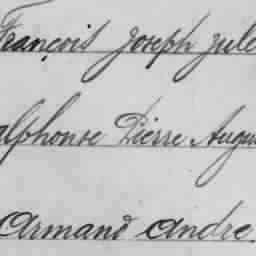 François Joseph Jule
Alphonse Pierre Augu
Armand Andre